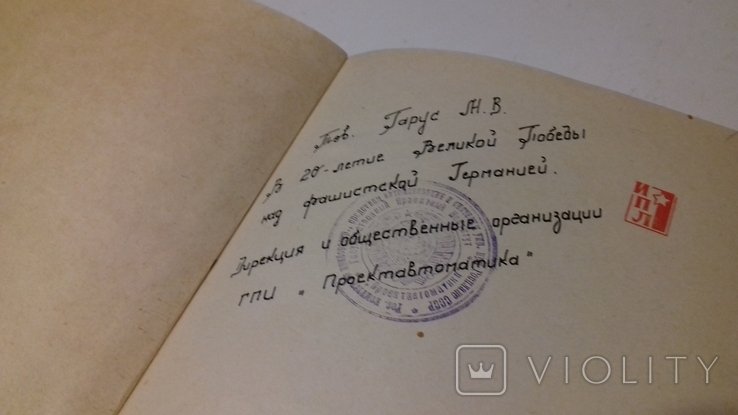 Тов. Гарус М. В.
В 20-летие Великой Победы
над фашистской Германией.
Дирекция и общественные организации
ГПИ "Проектавтоматика"
ИПЛ
СССР
VIOLITY